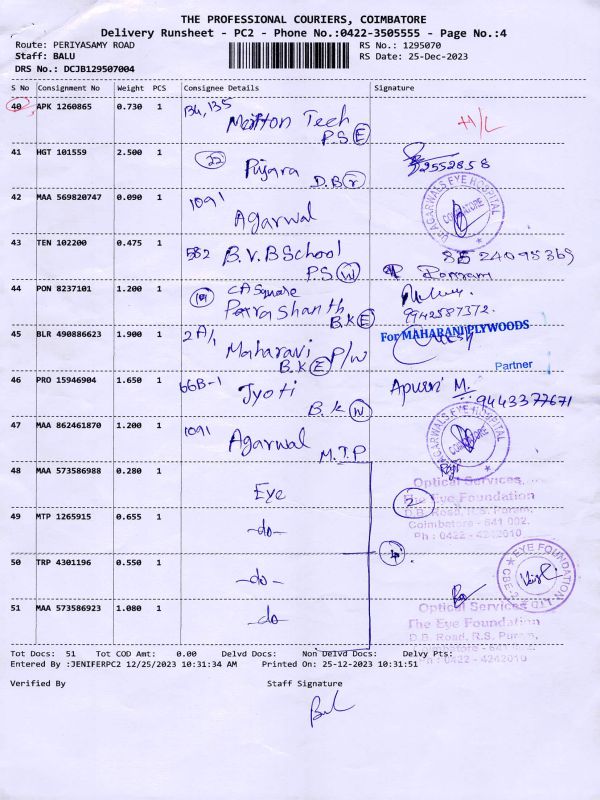 THE PROFESSIONAL COURIERS, COIMBATORE
Delivery Runsheet - PC2 - Phone No.:0422-3505555 - Page No.:4
Route: PERIYASAMY ROAD
RS No.: 1295070
Staff: BALU
RS Date: 25-Dec-2023
DRS No.: DCJB129507004
S No Consignment No Weight PCS Consignee Details Signature
40 APK 1260865 0.730 1 134,135
Tech H/L
P.S E
41 HGT 101559 2.500 1 22 Pujara 2552858
D.B r
42 MAA 569820747 0.090 1 1091
Agarwal
DR AGARWALS EYE HOSPITAL
COIMBATORE
43 TEN 102200 0.475 1 582 B.V.B School 8524095369
P.S W
44 PON 8237101 1.200 1 CA Square
Prashanth 9942587372.
B.K E
45 BLR 490886623 1.900 1 2A/1 For MAHARANI PLYWOODS
Maharani P/W
B.K E
Partner
46 PRO 15946904 1.650 1 66B-1 Jyoti M. 9443377671
B.K W
47 MAA 862461870 1.200 1 1091 Agarwal
M.T.P
AGARWALS EYE HOSPITAL
COIMBATORE
48 MAA 573586988 0.280 1 Eye 2
Optical Services,
The Eye Foundation
D.B. Road, R.S. Puram,
Coimbatore - 641 002.
Ph : 0422 - 4242010
49 MTP 1265915 0.655 1 -do-
50 TRP 4301196 0.550 1 -do-
EYE FOUNDATION LTD
CBE-2
51 MAA 573586923 1.080 1 -do-
Optical Services
The Eye Foundation
D.B. Road, R.S. Puram,
Ph : 0422 - 4242010
Tot Docs: 51 Tot COD Amt: 0.00 Delvd Docs: Non Delvd Docs: Delvy Pts:
Entered By :JENIFERPC2 12/25/2023 10:31:34 AM Printed On: 25-12-2023 10:31:51
Verified By Staff Signature